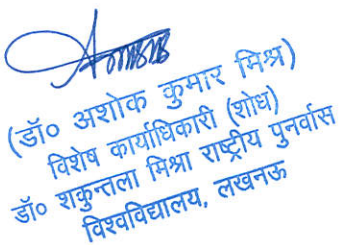 (डॉ० अशोक कुमार मिश्र)
विशेष कार्याधिकारी (शोध)
डॉ० शकुन्तला मिश्रा राष्ट्रीय पुनर्वास
विश्वविद्यालय, लखनऊ